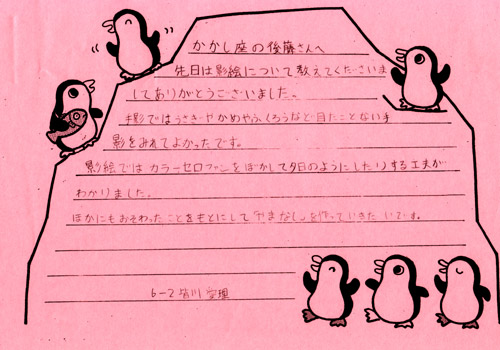 かかし座の後藤さんへ
先日は影絵について教えてくださいま
してありがとうございました。
手影ではうさぎやかめやふくろうなど目たことない手
影をみれてよかったです。
影絵ではカラーセロファンをぼかして夕日のようにしたりする工夫が
わかりました。
ほかにもおそわったことをもとにして「やまなし」を作っていきたいです。
6-2 皆川